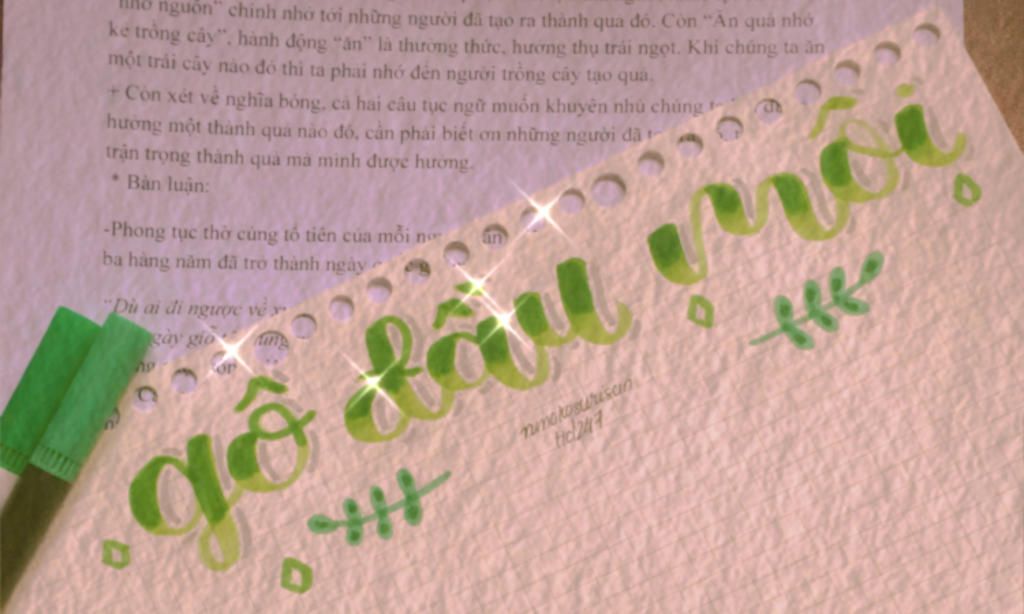 "nhớ nguồn" chính nhớ tới những người đã tạo ra thành quả đó. Còn "Ăn quả nhớ
kẻ trồng cây", hành động "ăn" là thưởng thức, hưởng thụ trái ngọt. Khi chúng ta ăn
một trái cây nào đó thì ta phải nhớ đến người trồng cây tạo quả.
+ Còn xét về nghĩa bóng, cả hai câu tục ngữ muốn khuyên nhủ chúng
hưởng một thành quả nào đó, cần phải biết ơn những người đã
trân trọng thành quả mà mình được hưởng.
* Bàn luận:
-Phong tục thờ cúng tổ tiên của mỗi
ba hàng năm đã trở thành ngày
"Dù ai đi ngược về
gày giỗ
gô đâu môi